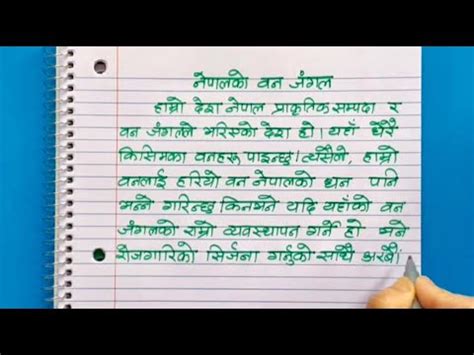 नेपालको वन जंगल
हाम्रो देश नेपाल प्राकृतिक सम्पदा र
वन जंगलले भरिएको देश हो। यहाँ धेरै
किसिमका वनहरू पाइन्छ। त्यसैले, हाम्रो
वनलाई हरियो वन नेपालको धन पनि
भन्ने गरिन्छ किनभने यदि यहाँको वन
जंगलको राम्रो व्यवस्थापन गर्ने हो भने
रोजगारिको सिर्जना गर्नुको साथै अरबौं।